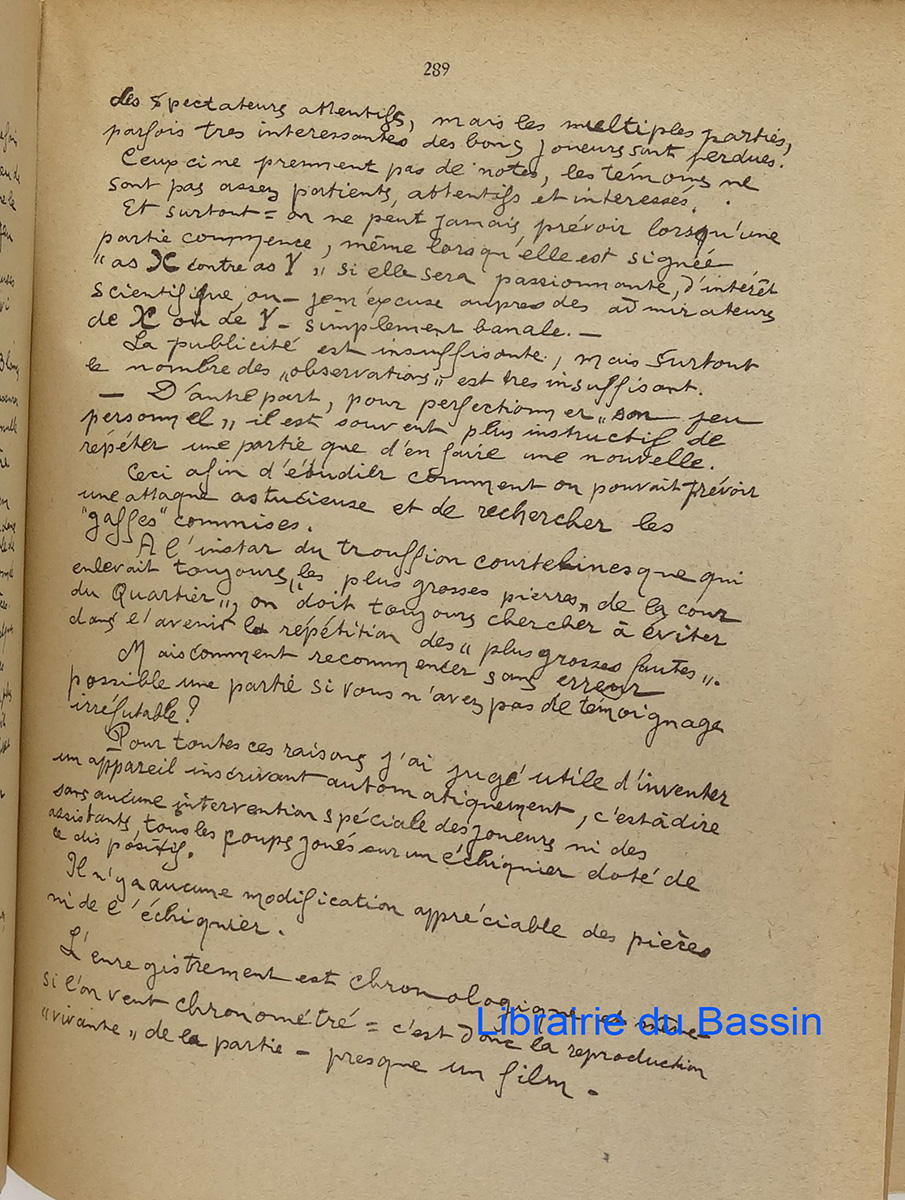 289
des spectateurs attentifs, mais les multiples parties,
parfois tres interessantes des bons joueurs sont perdues.
Ceux ci ne prennent pas de notes, les témoins ne
sont pas assez patients, attentifs et interessés.
Et surtout = on ne peut jamais prévoir lorsqu'une
partie commence, même lorsqu'elle est signée
"as X contre as Y" si elle sera passionnante, d'intérêt
scientifique, ou - je m'excuse aupres des admirateurs
de X ou de Y - simplement banale. -
La publicité est insuffisante, mais surtout
le nombre des "observations" est tres insuffisant.
- D'autre part, pour perfectionner "son jeu
personnel" il est souvent plus instructif de
répéter une partie que d'en faire une nouvelle.
Ceci afin d'étudier comment on pouvait prévoir
une attaque astucieuse et de rechercher les
"gaffes" commises.
A l'instar du trouffion courtelinesque qui
enlevait toujours "les plus grosses pierres" de la cour
du Quartier", on doit toujours chercher à éviter
dans l'avenir la répétition des "plus grosses fautes".
Mais comment recommencer sans erreur
possible une partie si vous n'avez pas de témoignage
irréfutable?
Pour toutes ces raisons j'ai jugé utile d'inventer
un appareil inscrivant automatiquement, c'est à dire
sans aucune intervention spéciale des joueurs ni des
assistants, tous les coups joués sur un échiquier doté de
ce dispositif.
Il n'y a aucune modification appréciable des pièces
ni de l'échiquier.
L'enregistrement est chronologique et même
si l'on veut chronométré = c'est donc la reproduction
"vivante" de la partie - presque un film.
Librairie du Bassin